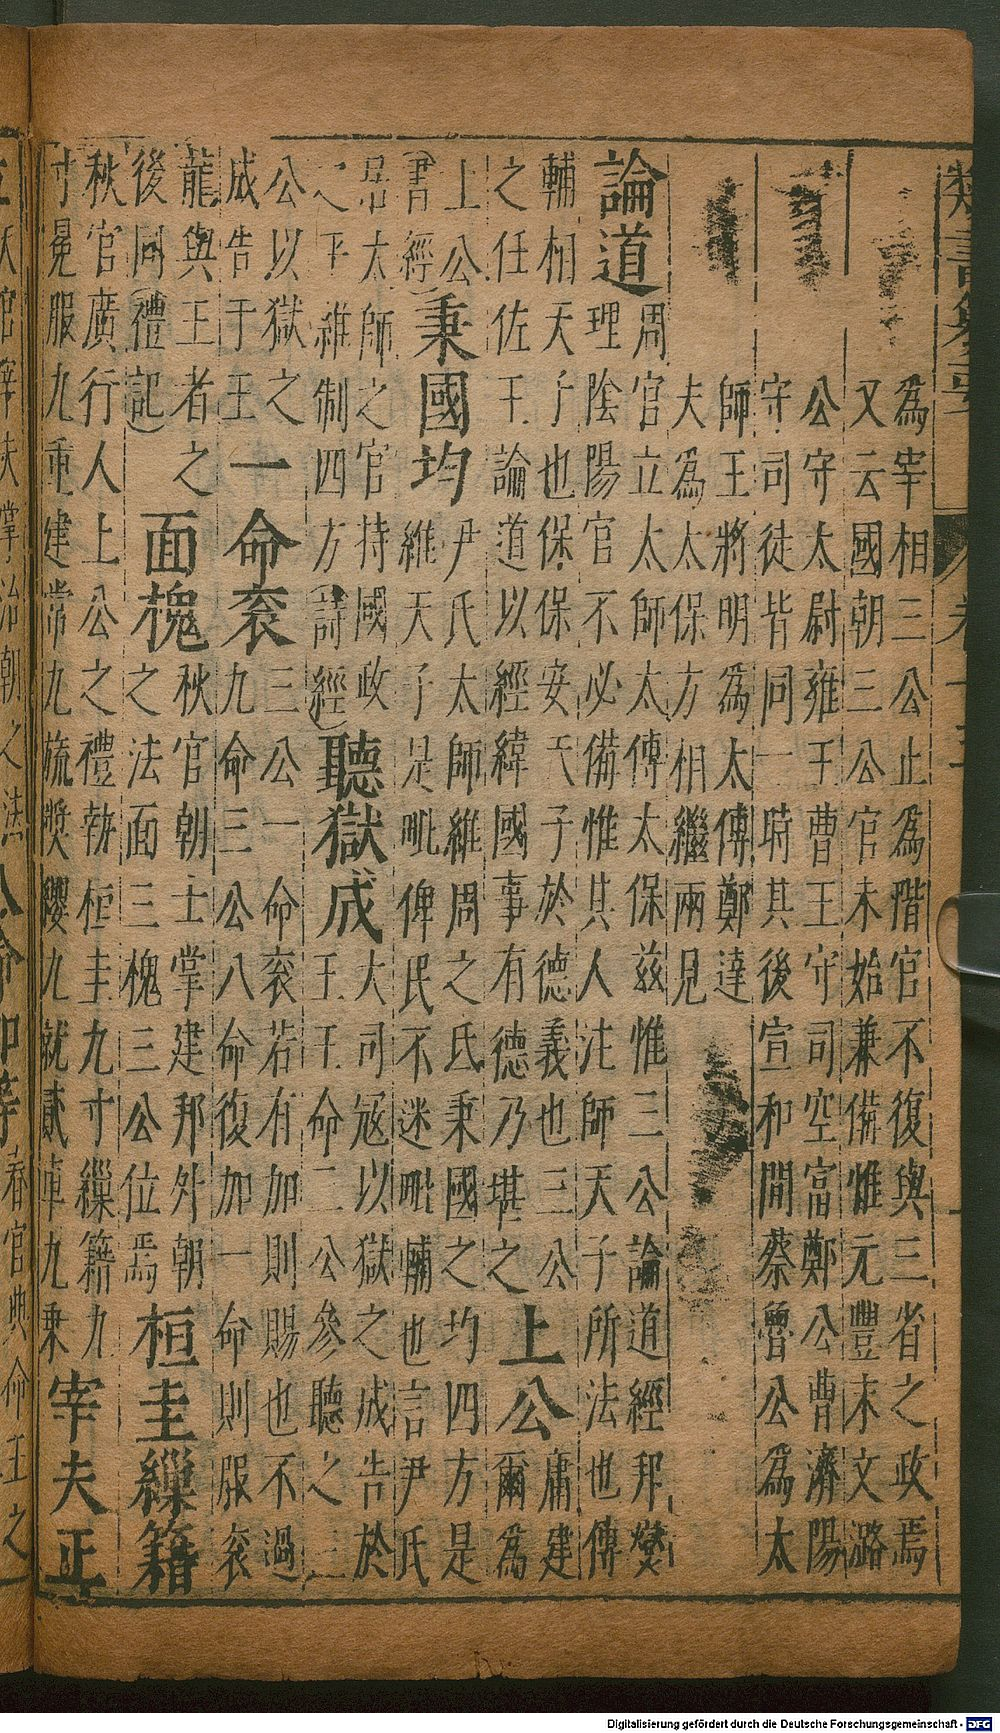 為宰相三公止為階官不復與三省之政焉
又云國朝三公官未始兼備惟元豐末文潞
公守太尉雍王曹王守司空富鄭公曹濟陽
守司徒皆同一時其後宣和間蔡魯公為太
師王將明為太傅鄭達
夫為太保方相繼兩見
論道
周官立太師太傅太保茲惟三公論道經邦燮
理陰陽官不必備惟其人注師天子所法也傅
輔相天子也保保安天子於德義也三公
之任佐王論道以經緯國事有德乃堪之
上公
庸建
爾為
上公
書經
秉國均
尹氏太師維周之氏秉國之均四方是
維天子是毗俾民不迷毗輔也言尹氏
居太師之官持國政
之平維制四方詩經
聽獄成
大司冦以獄之成告於
王王命三公參聽之三
公以獄之
成告于王
一命衮
三公一命衮若有加則賜也不過
九命三公八命復加一命則服衮
龍與王者之
後同禮記
面槐
秋官朝士掌建邦外朝
之法面三槐三公位焉
桓圭繅籍
秋官廣行人上公之禮執桓圭九寸繅籍九
寸冕服九重建常九旒樊纓九就貳車九乘
宰夫正
王之
八命
春官典命王之
Digitalisierung gefördert durch die Deutsche Forschungsgemeinschaft - DFG